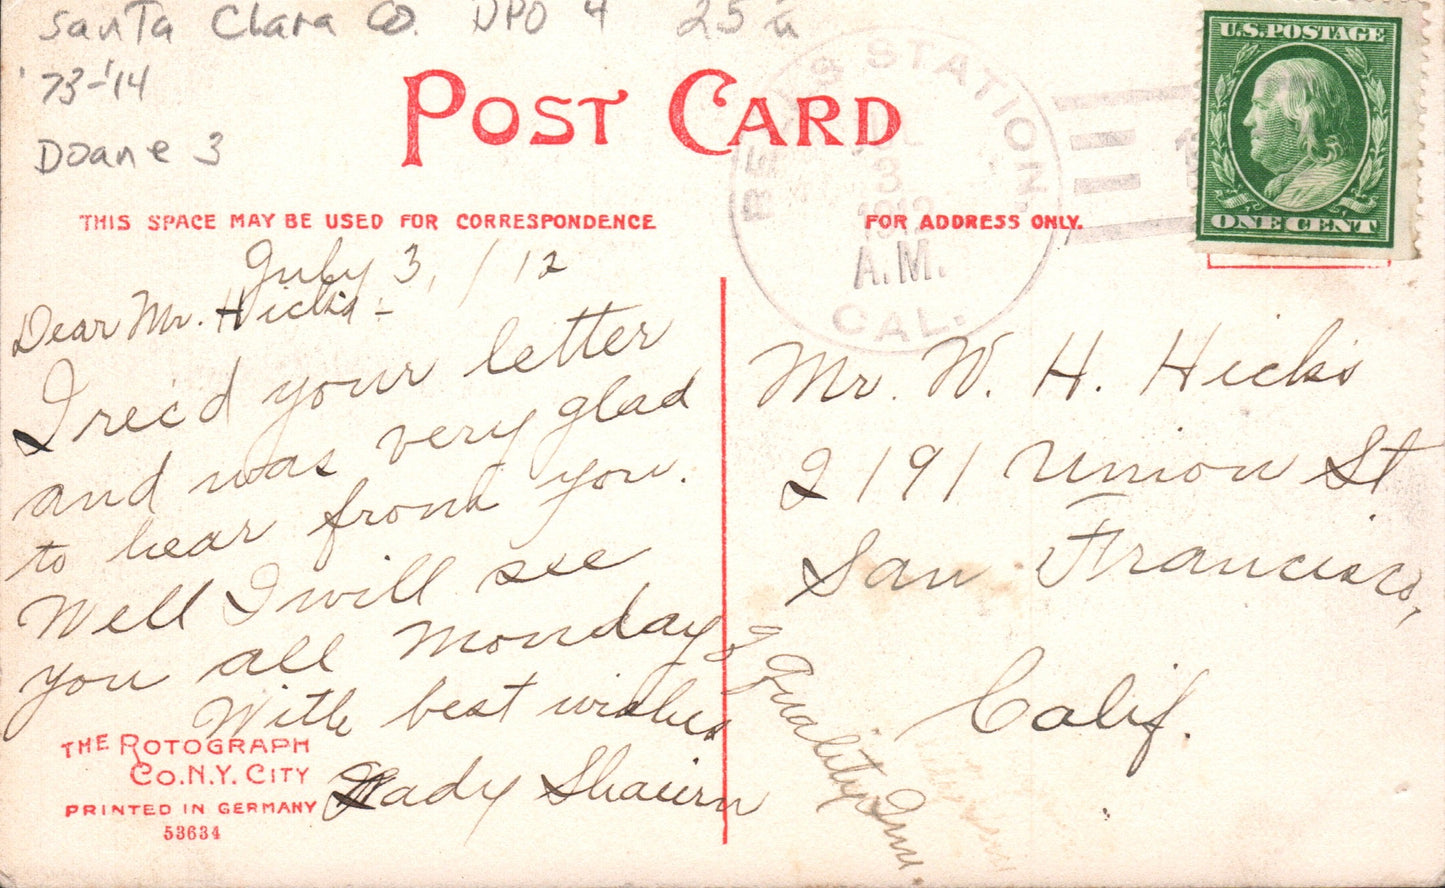 Santa Clara Co. DPO 4 25
'73-'14
Doane 3
POST CARD
STATION,
3
1912
A.M.
CAL.
U.S. POSTAGE
ONE CENT
THIS SPACE MAY BE USED FOR CORRESPONDENCE
FOR ADDRESS ONLY.
July 3, / 12
Dear Mr. Hicks -
I rec'd your letter
and was very glad
to hear from you.
Well I will see
you all Monday
With best wishes
Lady
of Quality Inn.
Mr. W. H. Hicks
2191 Union St
San Francisco,
Calif.
THE ROTOGRAPH
CO. N.Y. CITY
PRINTED IN GERMANY
53634